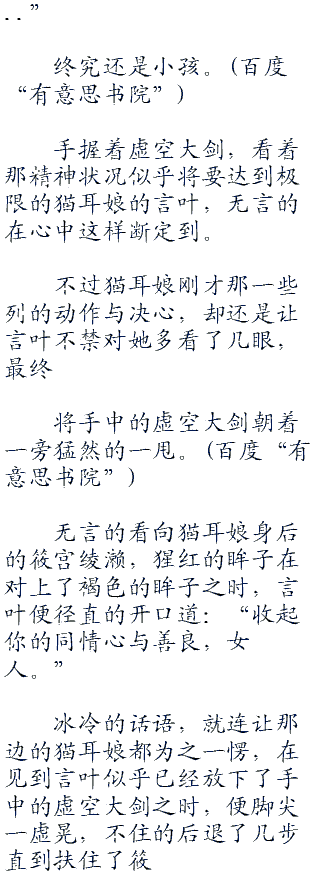 ..”
终究还是小孩。(百度
“有意思书院”)
手握着虚空大剑，看着
那精神状况似乎将要达到极
限的猫耳娘的言叶，无言的
在心中这样断定到。
不过猫耳娘刚才那一些
列的动作与决心，却还是让
言叶不禁对她多看了几眼，
最终
将手中的虚空大剑朝着
一旁猛然的一甩。(百度“有
意思书院”)
无言的看向猫耳娘身后
的筱宫绫濑，猩红的眸子在
对上了褐色的眸子之时，言
叶便径直的开口道：“收起
你的同情心与善良，女
人。”
冰冷的话语，就连让那
边的猫耳娘都为之一愣，在
见到言叶似乎已经放下了手
中的虚空大剑之时，便脚尖
一虚晃，不住的后退了几步
直到扶住了筱